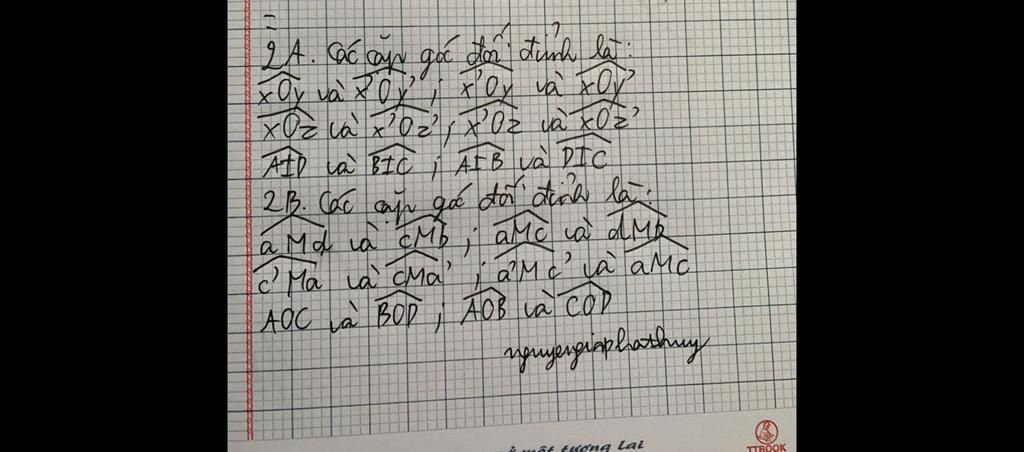 2A. Các cặp góc đối đỉnh là:
xOy và x'Oy' ; x'Oy và xOy'
xOz và x'Oz' ; x'Oz và xOz'
AID và BIC ; AIB và DIC
2B. Các cặp góc đối đỉnh là:
aMd và cMb ; aMc và dMb
c'Ma và cMa' ; a'Mc' và aMc
AOC và BOD ; AOB và COD
nguyengiaphathuy
một tương lai
TTBOOK